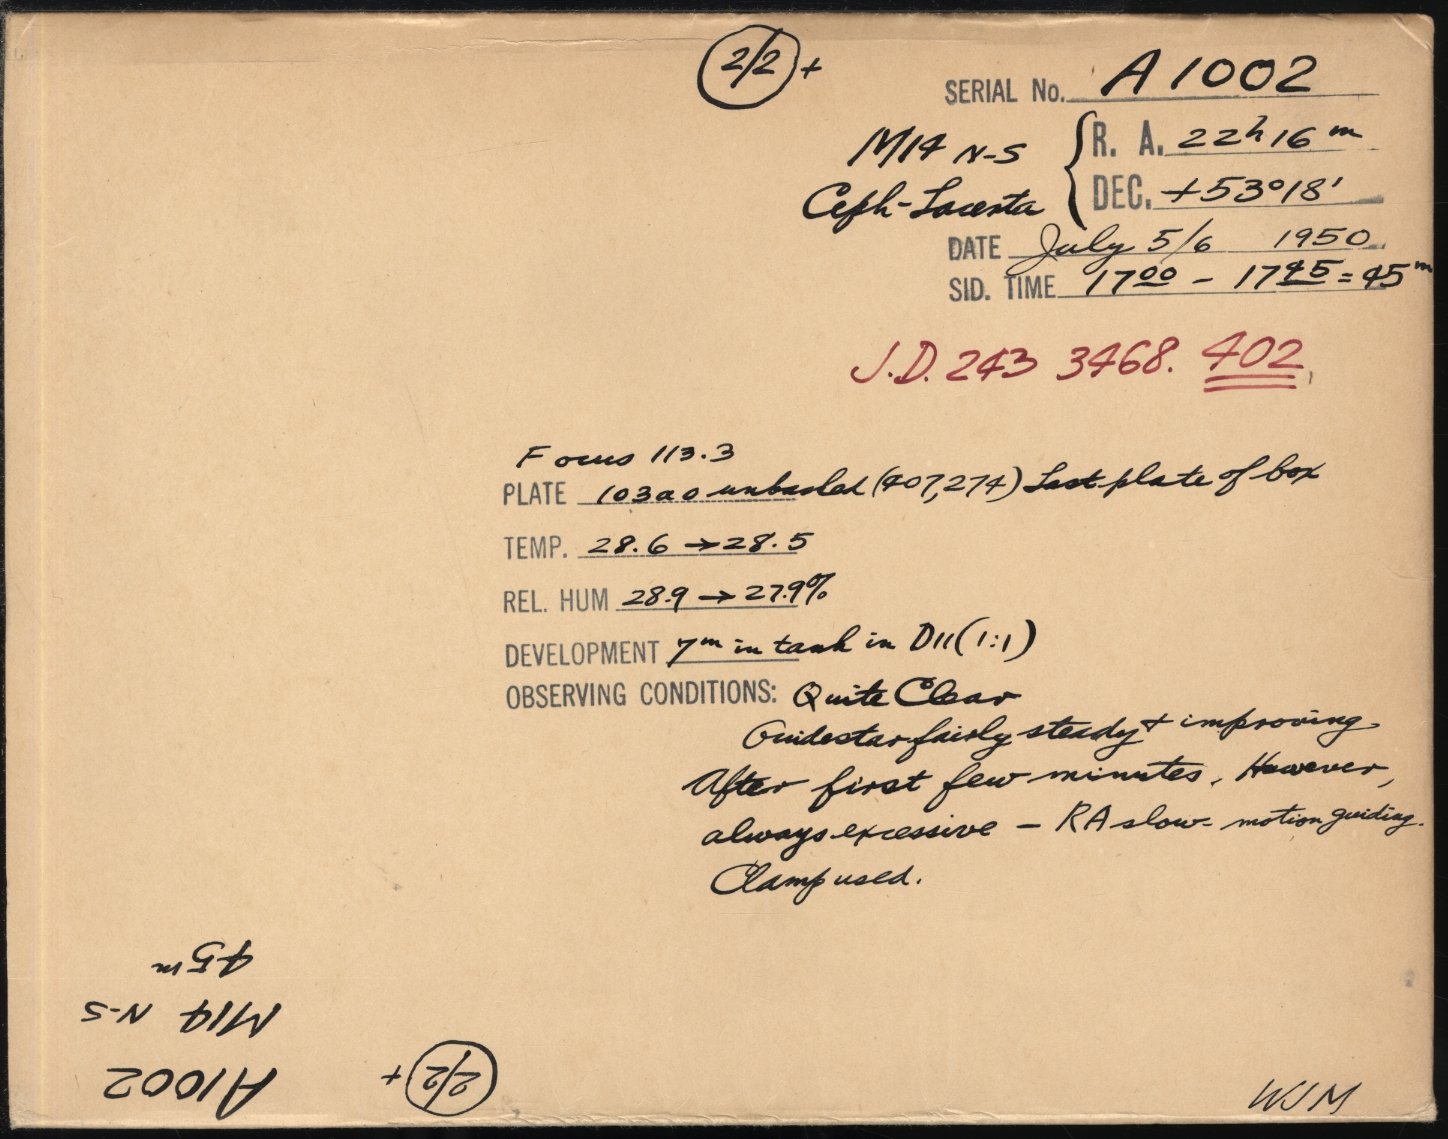 2/2 +
SERIAL No. A1002
M14 N-S { R. A. 22h 16m
Ceph-Lacerta DEC. +53°18'
DATE July 5/6 1950
SID. TIME 17 00 - 17 45 = 45m
J.D. 243 3468. 402
Focus 113.3
PLATE 103aO unbacked (407,274) Last plate of box
TEMP. 28.6 → 28.5
REL. HUM 28.9 → 27.9%
DEVELOPMENT 7m in tank in D11 (1:1)
OBSERVING CONDITIONS: Quite Clear
Guidestar fairly steady + improving
After first few minutes. However,
always excessive – RA slow-motion guiding.
Clamp used.
45m
M14 N-S
A1002
2/2 +
WJM